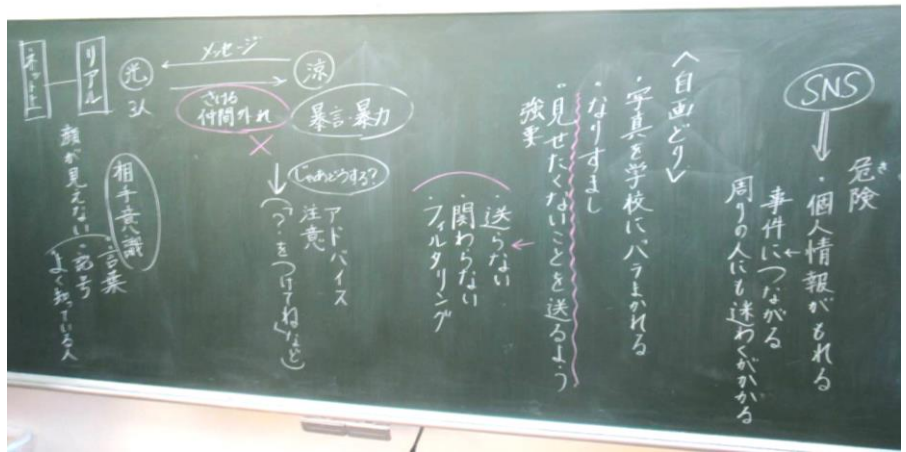 SNS
危険
き
・個人情報がもれる
事件につながる
周りの人にも迷わくがかかる
〈自画どり〉
・写真を学校にバラまかれる
・なりすまし
・見せたくないことを送るよう
強要
・送らない
・関わらない
・フィルタリング
涼
メッセージ
光
3人
暴言・暴力
さける
仲間外れ
じゃあどうする?
アドバイス
注意
(「?」をつけてねなど)
リアル
ネット
相手意識
・言葉
・記号
顔が見えない
よく知っている人